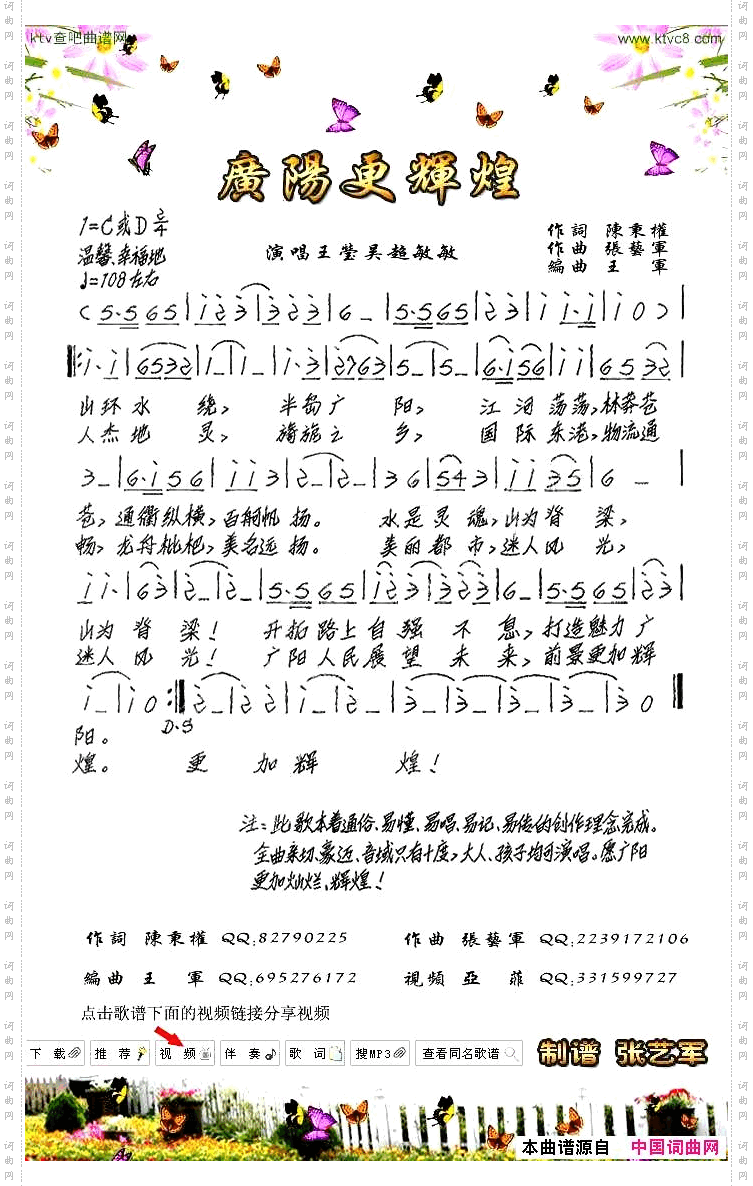 ktv查吧曲谱网
www.ktvc8.com
廣陽更輝煌
1=C或D 2/4
温馨、幸福地
♩=108左右
演唱王瑩吴超敏敏
作詞 陳秉權
作曲 張藝軍
編曲 王 軍
山环水 绕, 半岛广 阳, 江河荡荡,林莽苍
人杰地 灵, 旖旎之 乡, 国际东港,物流通
苍,通衢纵横,百舸帆 扬。 水是灵 魂,山为脊 梁,
畅,龙舟枇杷,美名远 扬。 美丽都 市,迷人风 光,
山为 脊 梁! 开拓路上自强 不 息,打造魅力广
迷人 风 光! 广阳人民展 望 未 来,前景更加辉
D.S
阳。
煌。 更 加 辉 煌!
注:此歌本着通俗、易懂、易唱、易记、易传的创作理念完成。
全曲亲切、豪迈、音域只有十度,大人、孩子均可演唱。愿广阳
更加灿烂、辉煌!
作詞 陳秉權 QQ:82790225 作曲 張藝軍 QQ:2239172106
編曲 王 軍 QQ:695276172 視頻 亞 菲 QQ:331599727
点击歌谱下面的视频链接分享视频
下 载 推 荐 视 频 伴 奏 歌 词 搜MP3 查看同名歌谱
制谱 张艺军
本曲谱源自 中国词曲网